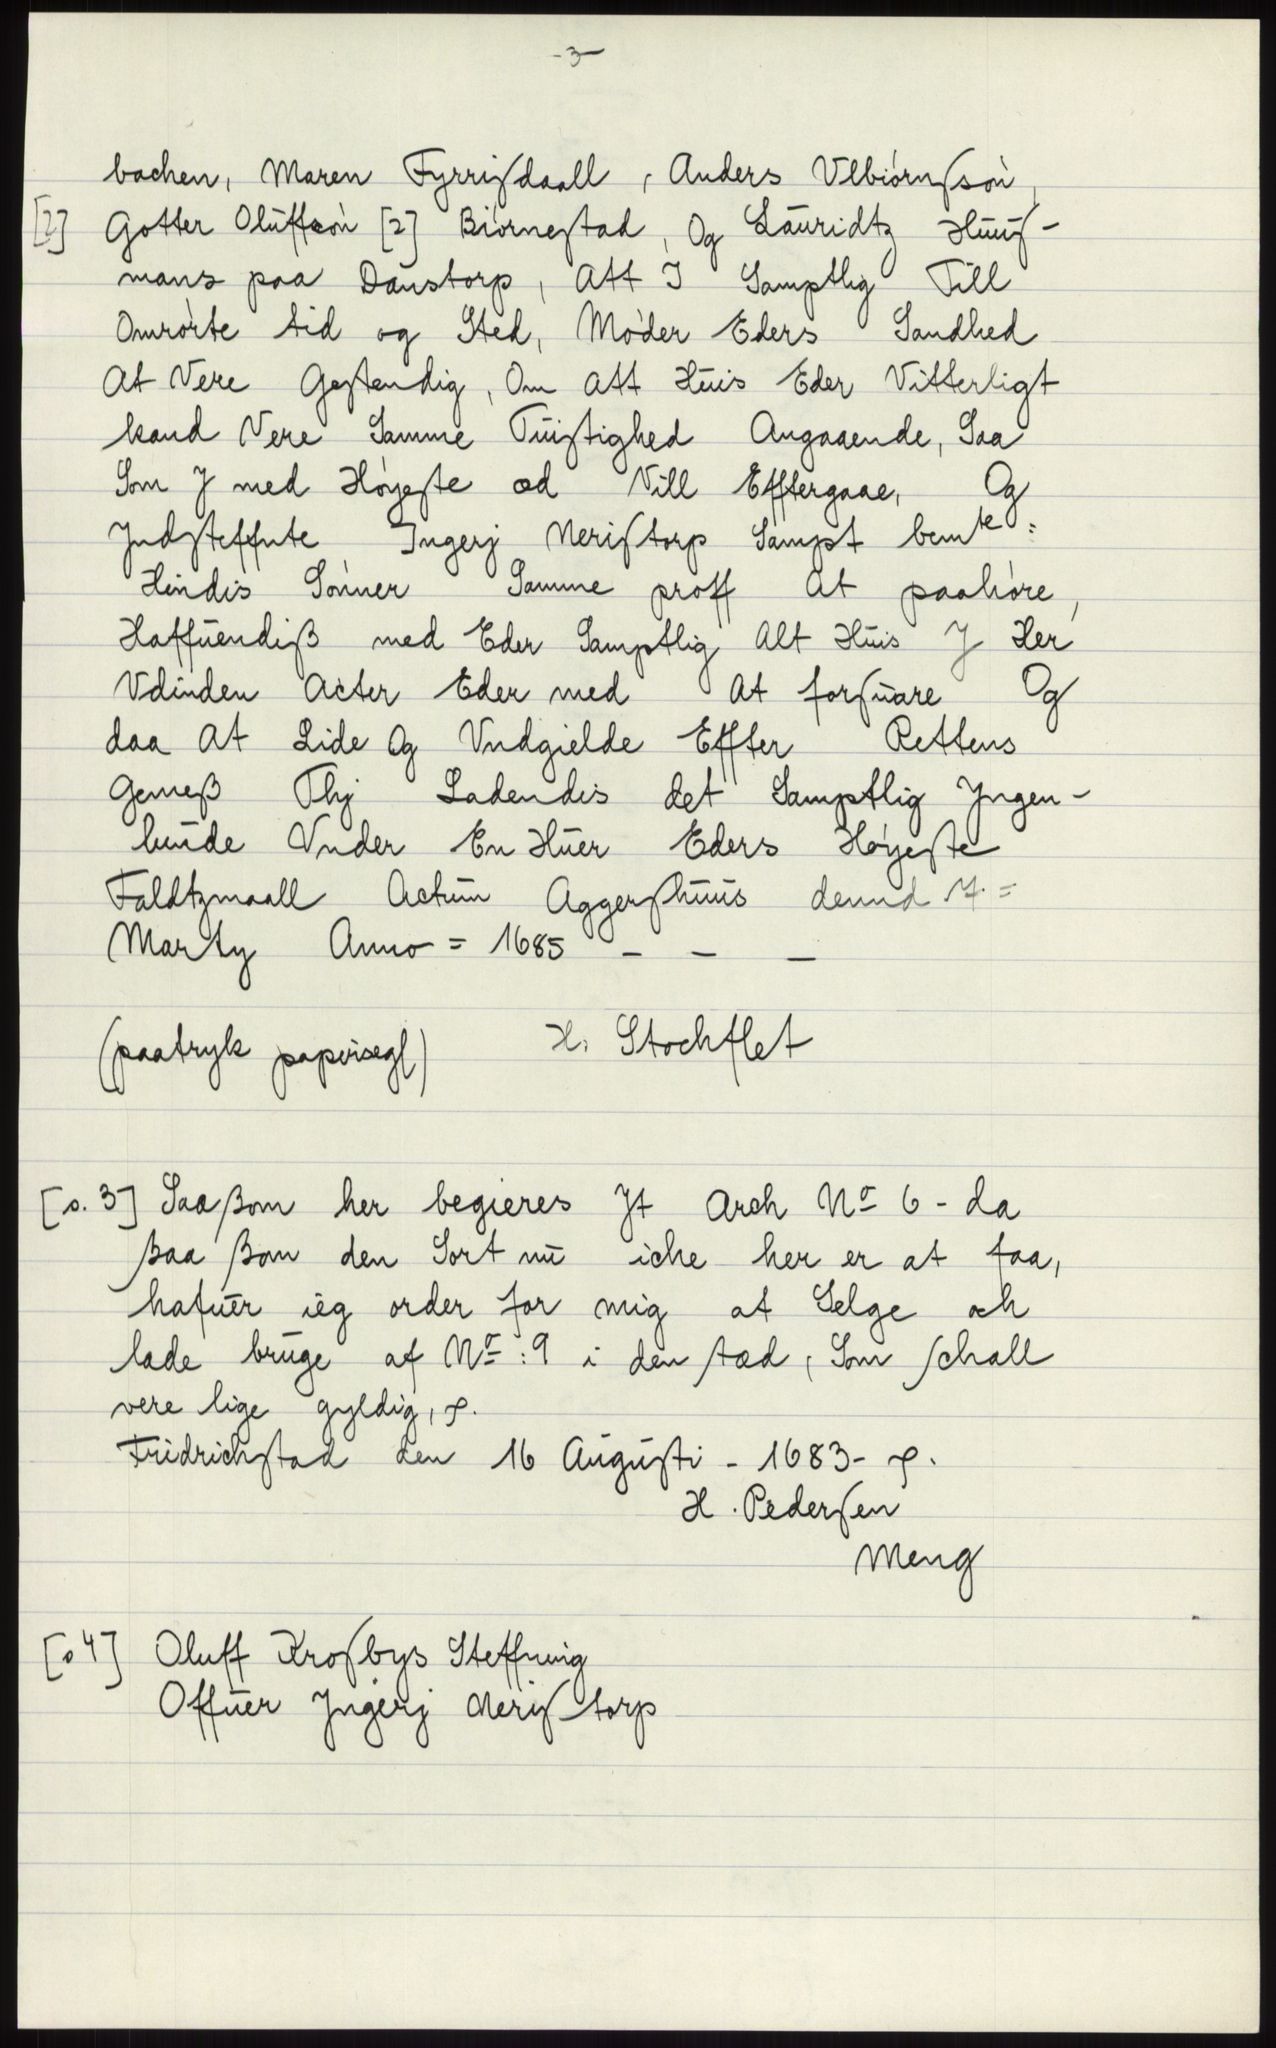 -3-
bachen, Maren Fyrrisdaall, Anders Vlbiørnssøn,
[2] Gotter Oluffsøn [2] Biørnestad, Og Lauridtz Huus-
mans paa Danstorp, Att I Samptlig Till
Omrørte tid og Sted, Møder Eders Sandhed
At Vere Gestendig, Om Att Huis Eder Vitterligt
kand Vere Samme Tuistighed Angaaende, Saa
Som J med Høyeste æd Vill Efftergaae, Og
Jndsteffnte Ingerj Neristorp Sampt bemte:
Hindis Sønner Samme proff At paahøre,
Haffuendiß med Eder Samptlig Alt Huis J Her
Vdinden Acter Eder med At forsuare Og
daa At Lide Og Vndgielde Effter Rettens
Gemeß Thj Ladendis det Samptlig Yngen-
lunde Vnder En Huer Eders Høyeste
Faldtzmaall Actum Aggershuus dennd 7. =
Marty Anno = 1685 - - -
(paatryk papirsegl) H. Stochflet
[s. 3] Saa ßom her begieres Jt Arch No 6 - da
ßaa ßom den Sort nu iche her er at faa,
hafuer ieg order for mig at Selge och
lade bruge af No : 9 i den stæd, Som schall
vere lige gyldig, p.
Fridrichstad den 16 Augusti - 1683 - p.
H. Pedersen
Meng
[s 4] Oluff Krosbys Steffning
Offuer Jngerj Neristorp